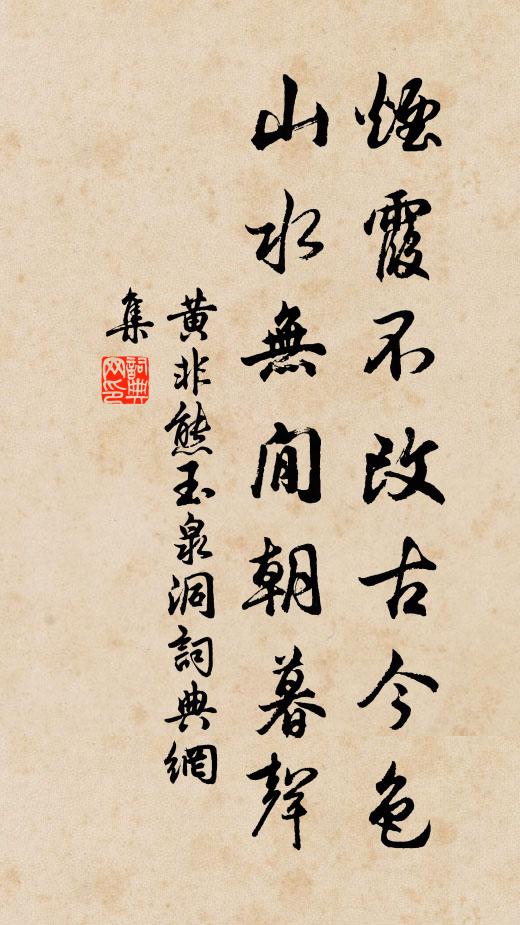 煙霞不改古今色
山水無間朝暮聲
黄非熊玉泉洞詞典網
集
詞典网印